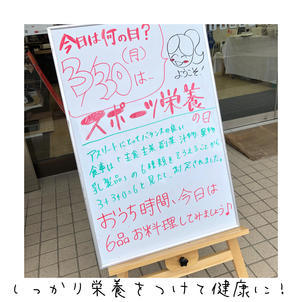 今日は何の日?
3/30(月)
は…
ようこそ
スポーツ栄養
の日
アスリートにとってバランスの良い
食事は「主食 主菜 副菜 汁物 果物
乳製品」の6種類をそろえることから
3+3+0=6と見たて、制定されました。
おうち時間、今日は
6品お料理してみましょう♪
しっかり栄養をつけて健康に!